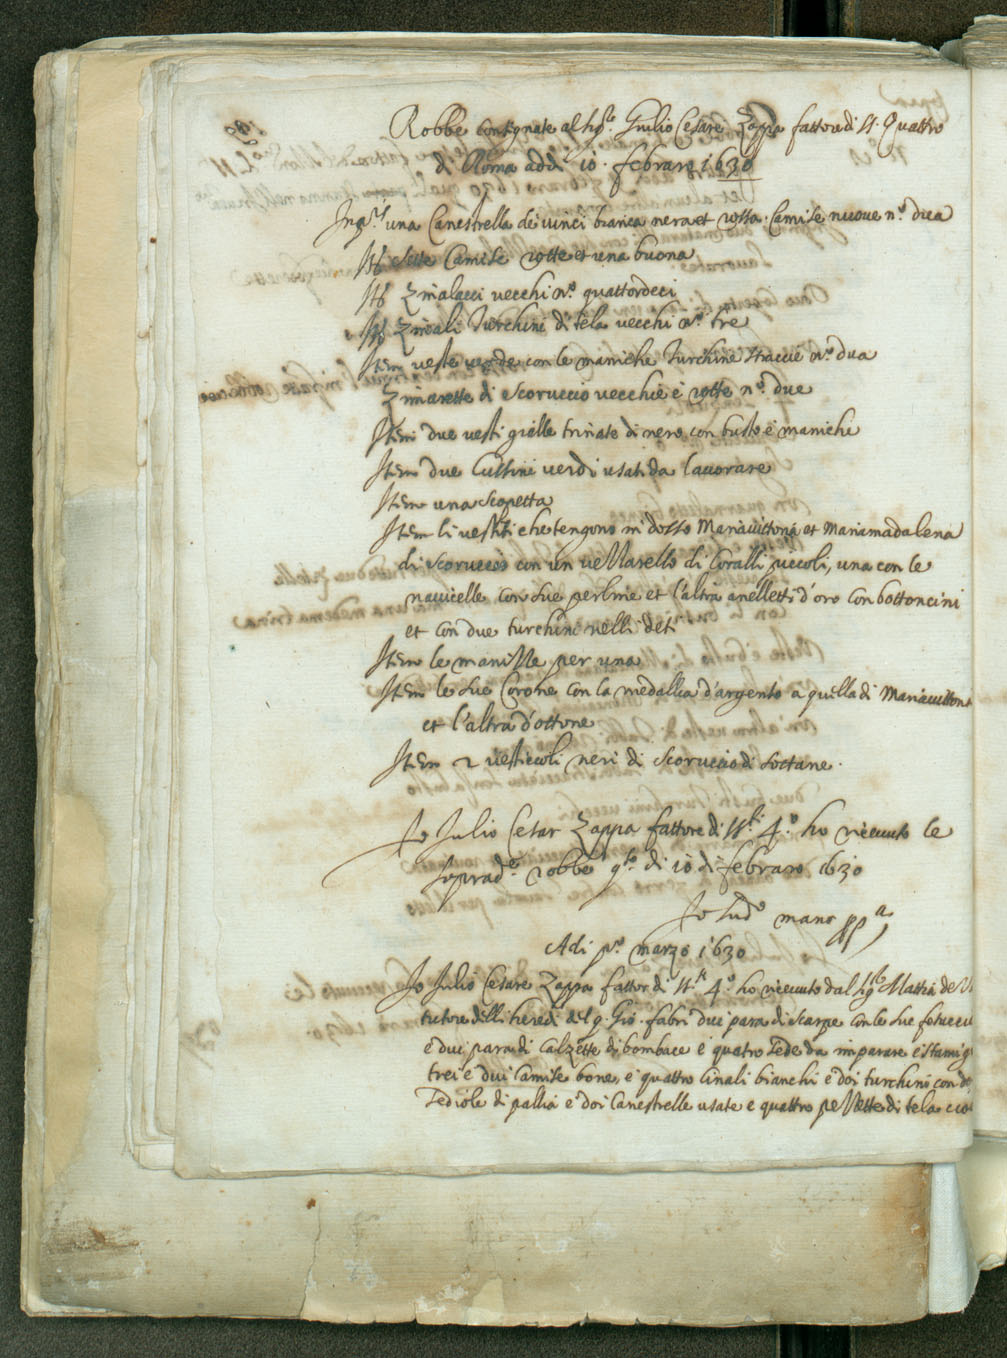 Robbe consignate al Sig.re Giulio Cesare Zappa fattore di S.ti Quattro
di Roma add. 10. febraro 1630
In p.s una Canestrella de vinci bianca nera et rossa. Camise nuove n.o dua
It. sette Camise rotte et una buona
It. Zinalacci vecchi n.o quattordeci
It. Zinali Turchini di tela vecchi n.o tre
Item veste verde con le maniche Turchine stracciè n.o dua
Zimarette di scoruccio vecchie è rotte n.o due
Item due vesti gialle trinate di nero con busto è maniche
Item due Cussini verdi usati da lavorare
Item una scopetta
Item li vestiti che tengono in dosso Mariavittoria et Mariamadalena
di scoruccio con un vellarello di Coralli piccoli, una con le
navicelle con sue perline et l'altra anelletti d'oro con bottoncini
et con due turchini nelli deti
Item le manille per una
Item le sue Corone con la medallia d'argento a quilla di Mariavittoria
et l'altra d'ottone
Item 2 vesticcoli neri di scoruccio di sottane.
Io Julio Cesar Zappa fattore di S.ti 4.o ho ricevuto le
soprad.e robbe q.to di 10 di febraro 1630
Io sud.o mano pp.a
Adi p.o marzo 1630
Io Julio Cesare Zappa fattor di S.ti 4.o ho ricevuto dal Sig.re Mattia de
tutore delli heredi del q. Gio. fabri dui para di scarpe con le sue
e dui para di Calzette di bombace e quatro da imparare e
trei e dui Camise bone, e quattro sinali bianchi e doi turchini con
di pallia e doi Canestrelle usate e quattro pellette di tela